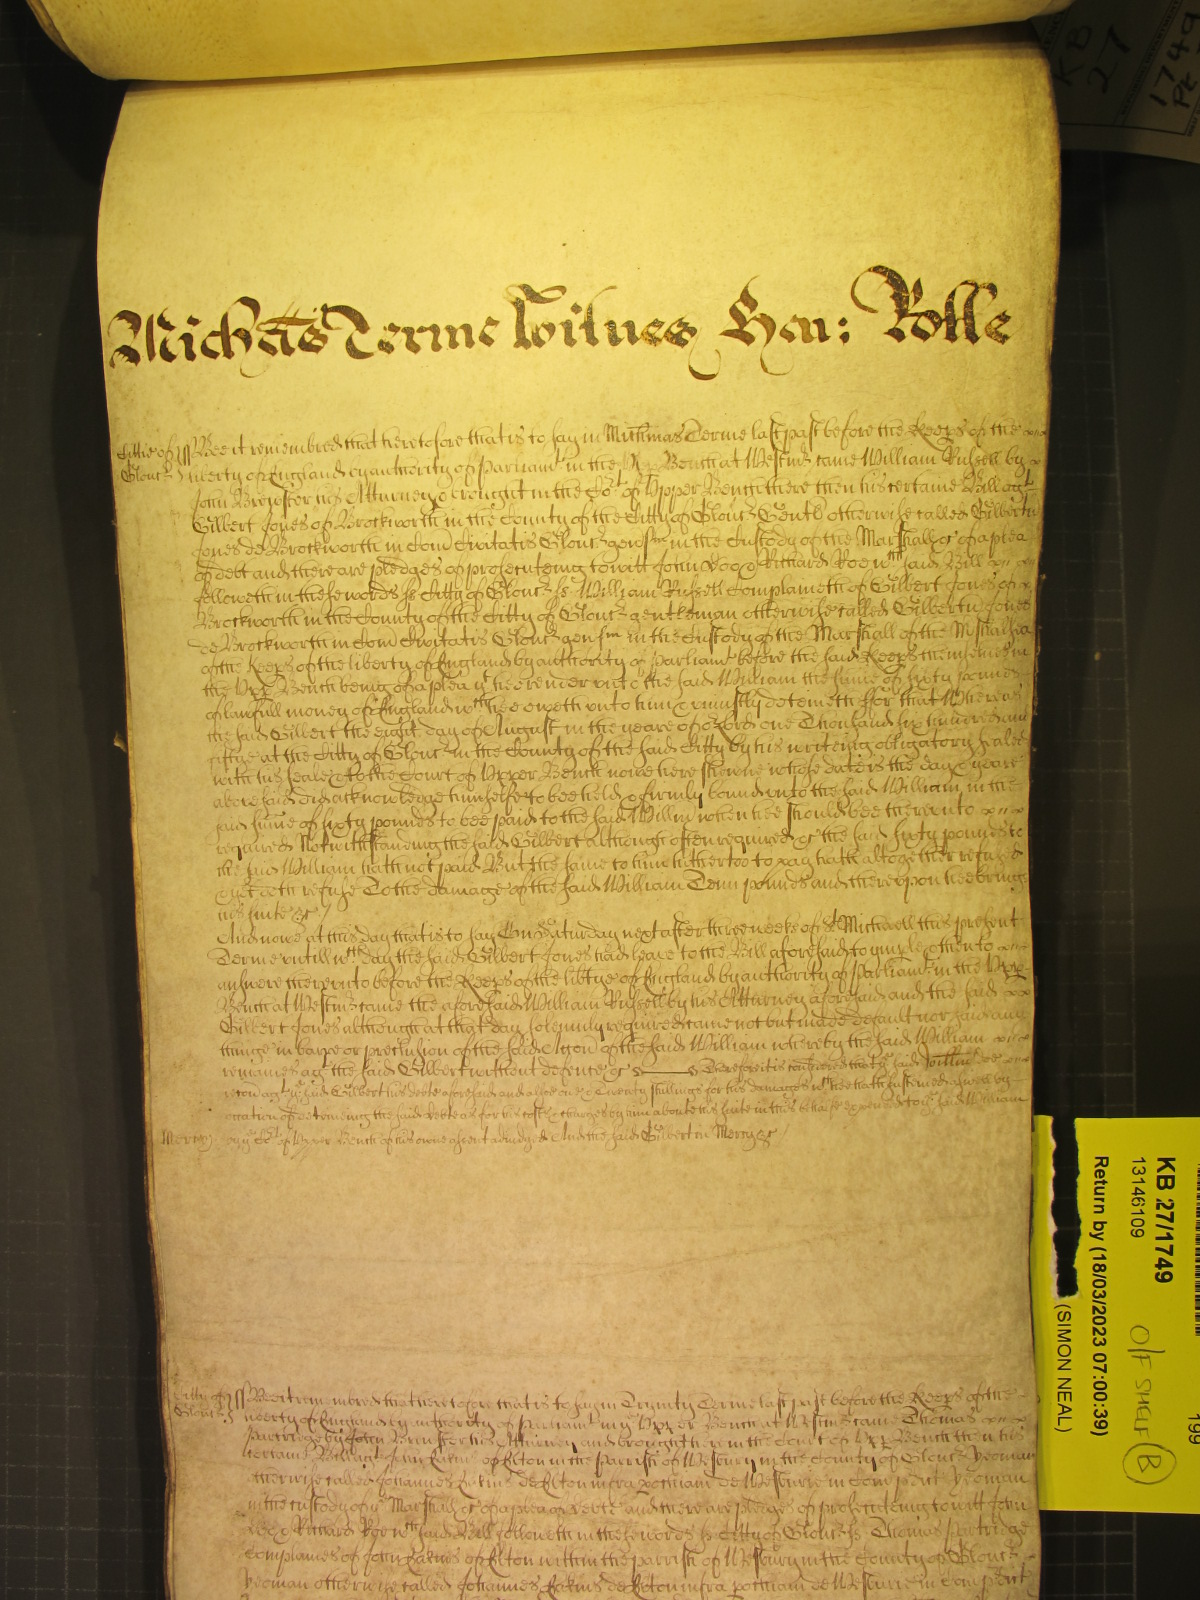 KB
27
1749
Pt
Michãs Terme Witnes Hen: Rolle
Cittie of ss Bee it remembred that heretofore that is to say in Michmas Terme last past before the Keeps of the
Glouc liberty of England by authority of Parliamt in the Upp Bench at Westmr came William Russell by
John Brewster his Atturney & brought in the Cort of Upper Bench here then his certaine Bill agt
Gilbert Jones of Brockworth in the County of the Citty of Glouc Gentl otherwise called Gilbertu
Jones de Brockworth in Com Civitatis Glouc gen in the Custody of the Marshall &c of a plea
of debt and there are pledges of prosecuteing to witt John Doo & Richard Roe wch said Bill
followeth in these words ss Citty of Glouc ss William Russell Complaineth of Gilbert Jones of
Brockworth in the County of the Citty of Glouc gentleman otherwise called Gilbertu Jones
de Brockworth in Com Civitatis Glouc gen in the Custody of the Marshall of the Mshalsea
of the Keeps of the liberty of England by authority of Parliamt before the said Keeps themselves in
the Upp Bench being of a plea yt hee render unto the said William the summe of sixty pounds
of lawfull money of England wch hee oweth unto him & uniustly deteineth ffor that Whereas
the said Gilbert the eight day of August in the yeare of or Lord one Thousand six hundred and
fiftie at the Citty of Glouc in the County of the said Citty by his writeing obligatory sealed
with his seale & to the Court of Upper Bench nowe here shewne whose date is the day & yeare
abovesaid did acknowledge himselfe to bee held & firmly bound unto the said William in the
said summe of sixty pounds to bee paid to the said Willm when hee should bee thereunto
required Notwithstanding the said Gilbert although often required &c the said sixty pounds to
the said William hath not paid But the same to him hitherto to pay hath altogether refused
& yet doth refuse To the damage of the said William Tenn pounds and thereupon hee brings
his suite &c
And nowe at this day that is to say On Saturday next after three weeks of St Michaell this present
Terme untill wch day the said Gilbert Jones had leave to the Bill aforesaid to imparle & then to
answere thereunto before the Keeps of the libtye of England by authority of Parliamt in the Upp
Bench at Westmr came the aforesaid William Russell by his Atturney aforesaid and the said
Gilbert Jones although at that day solemnly required came not but made default nor said any
thinge in barre or preclusion of the said Accon of the said William whereby the said William
remaines agt the said Gilbert without defence &c Therefore it is considered that the said Willm doe
recov agt ye said Gilbert his debte aforesaid and alsoe one & Twenty shillings for his damages wch hee hath susteined aswell by
occasion of deteineing the said debte as for his costs & charges by him about his suite in this behalfe expended to ye said William
Mercy by ye Cort of Upper Bench of his owne assent adiudged And the said Gilbert in Mercy &c
Citty of ss Bee it remembred that heretofore that is to say in Trynity Terme last past before the Keeps of the
Glouc liberty of England by authority of Parliamt in ye Upper Bench at Westmr came Thomas
Partridge by John Brewster his Atturney and brought here in the Court of Upp Bench then his
certaine Bill agt John Eakins of Elton in the parrish of Westbury in the County of Glouc Yeoman
otherwise called Johannes Eakins de Elton infra pochiam de Westburie in Com pdict Yeoman
in the custody of ye Marshall &c of a plea of debte and there are pledges of prosecuteing to witt John
Doo & Richard Roe wch said Bill followeth in these words ss Citty of Glouc ss Thomas Partridge
Complaines of John Eakins of Elton within the parrish of Westbury in the County of Glouc
Yeoman otherwise called Johannes Eakins de Elton infra pochiam de Westburie in Com pdict
KB 27/1749
13146109
Return by (18/03/2023 07:00:39)
(SIMON NEAL)
O/F SHELF B
199